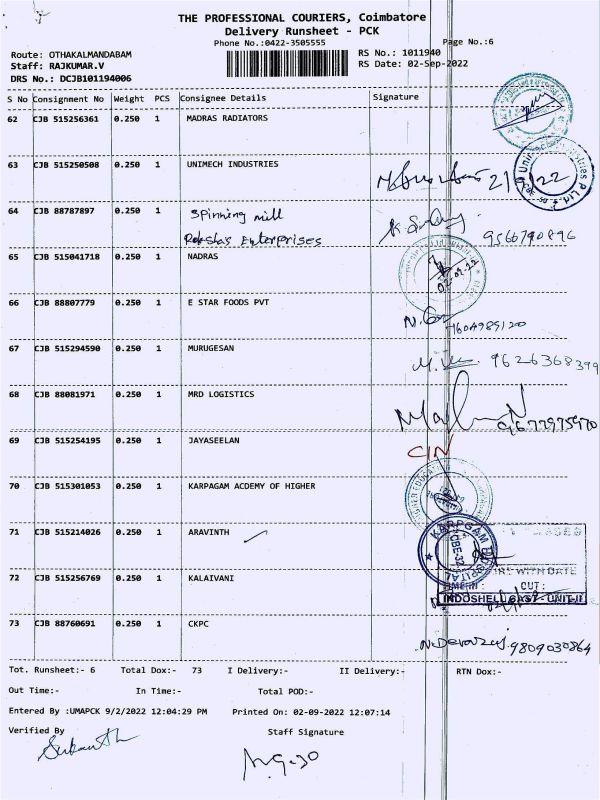 THE PROFESSIONAL COURIERS, Coimbatore
Delivery Runsheet - PCK
Phone No.:0422-3505555
Page No.:6
Route: OTHAKALMANDABAM
RS No.: 1011940
Staff: RAJKUMAR.V
RS Date: 02-Sep-2022
DRS No.: DCJB101194006
S No Consignment No Weight PCS Consignee Details Signature
62 CJB 515256361 0.250 1 MADRAS RADIATORS
63 CJB 515250508 0.250 1 UNIMECH INDUSTRIES
64 CJB 88787897 0.250 1 Spinning mill
Enterprises
9566790896
65 CJB 515041718 0.250 1 NADRAS
66 CJB 88807779 0.250 1 E STAR FOODS PVT
67 CJB 515294590 0.250 1 MURUGESAN
9626368399
68 CJB 88081971 0.250 1 MRD LOGISTICS
9677975970
69 CJB 515254195 0.250 1 JAYASEELAN
70 CJB 515301053 0.250 1 KARPAGAM ACDEMY OF HIGHER
71 CJB 515214026 0.250 1 ARAVINTH
KARPAGAM HOSPITAL
CBE-32
72 CJB 515256769 0.250 1 KALAIVANI
OUT :
INDOSHELL CAST - UNIT-II
73 CJB 88760691 0.250 1 CKPC
9809030864
Tot. Runsheet:- 6 Total Dox:- 73 I Delivery:- II Delivery:- RTN Dox:-
Out Time:- In Time:- Total POD:-
Entered By :UMAPCK 9/2/2022 12:04:29 PM Printed On: 02-09-2022 12:07:14
Verified By Staff Signature